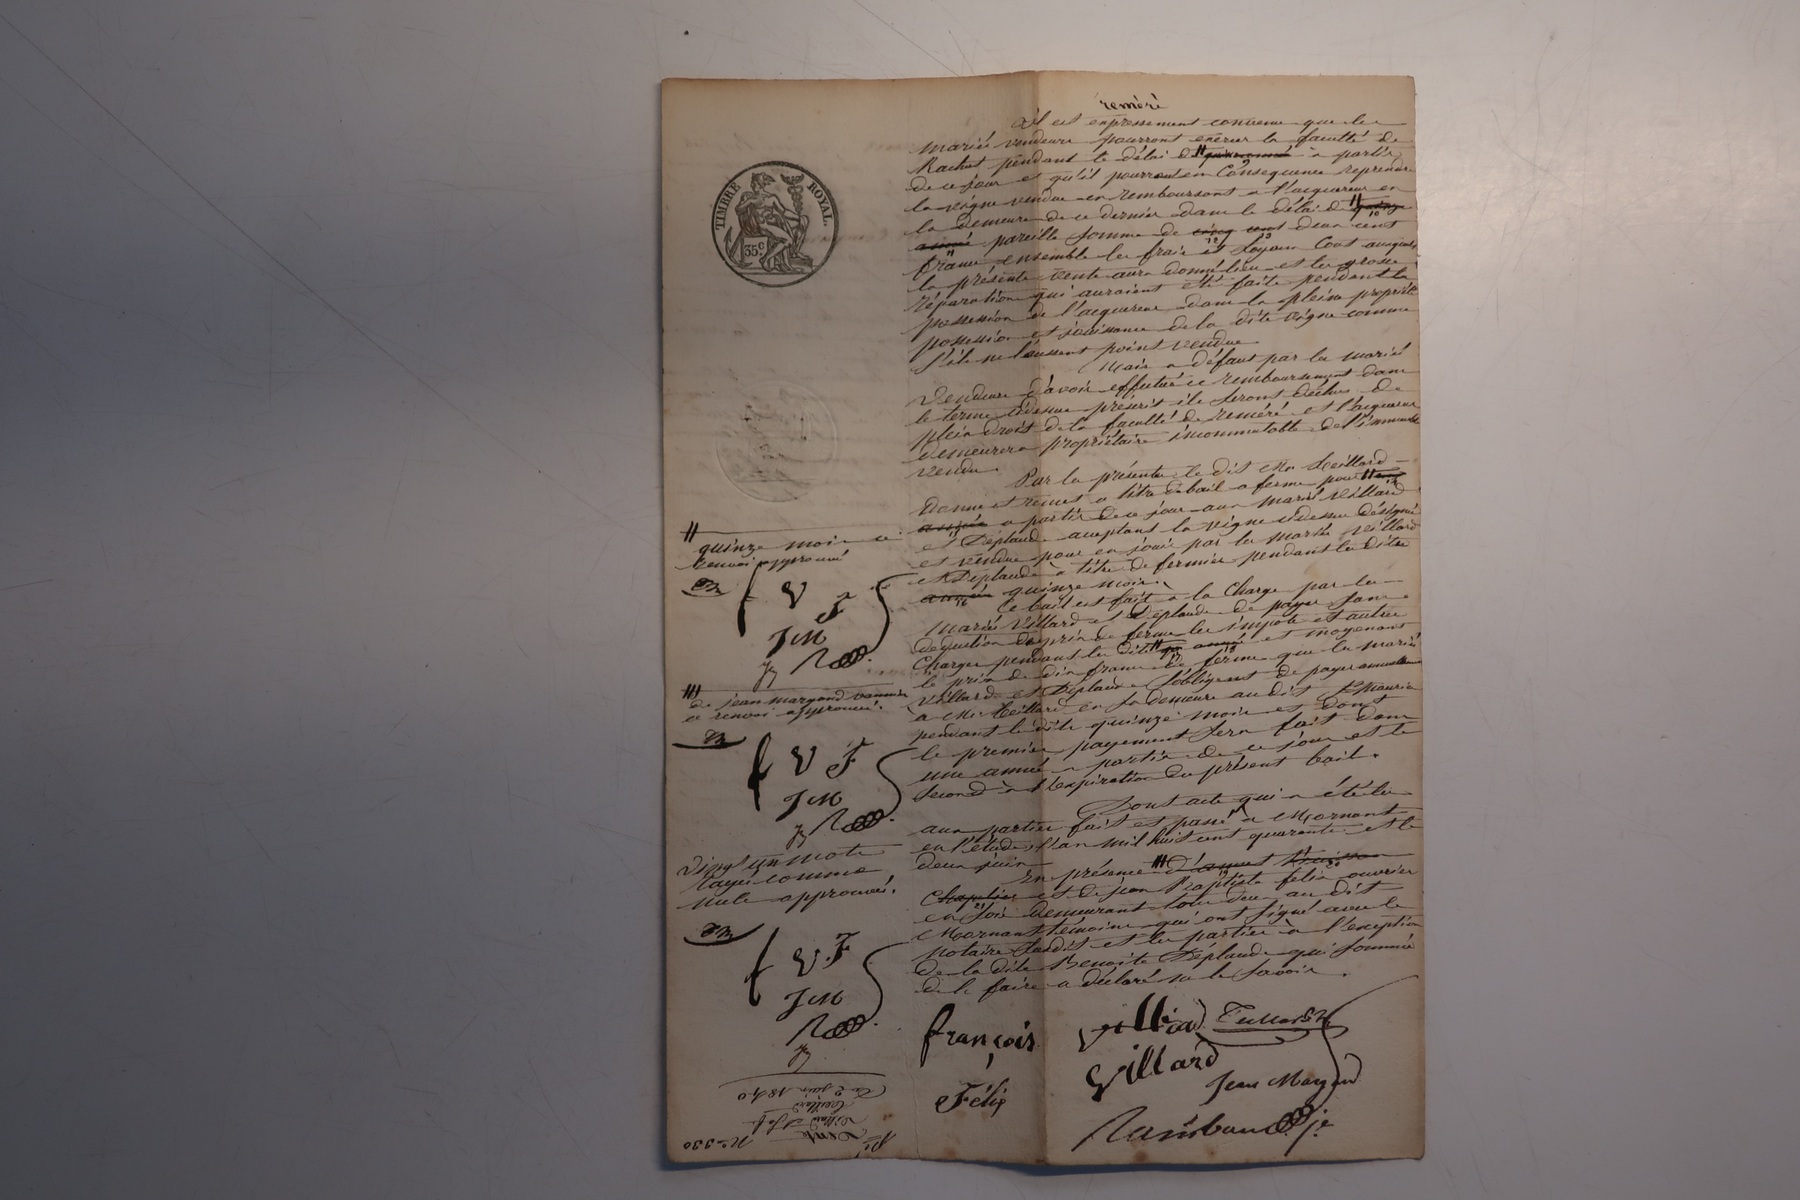 réméré
Il est expressement convenu que les
mariés vendeurs pourront exercer la faculté de
Rachat pendant le délai d à partir
de ce jour et qu'ils pourront en Conséquence reprendre
la vigne vendue en remboursant à l'acquereur en
la demeure de ce dernier dans le délai de
année pareille somme de cinq cent deux cent
francs ensemble les frais et loyaux Couts auxquels
la présente vente aura donné lieu et les grosses
réparations qui auraient été faites pendant la
possession de l'acquereur dans la pleine propriété
possession et jouissance de la dite vigne comme
s'ils ne l'eussent point vendue.
Mais à défaut par les mariés
Vendeurs d'avoir effectué ce remboursement dans
le terme ci dessus préscrit ils seront déchus de
plein droit de la faculté de réméré et l'acquereur
demeurera propriétaire incommutable de l'immeuble
vendu.
Par la présente le dit Mr Teillard
Donne et remet à titre de bail a ferme pour
année a partir de ce jour aux mariés Villard
et Déplaude acceptant la vigne ci dessus désignée
et vendue pour en jouir par les mariés Villard
et Déplaude à titre de fermier pendant les dites
année quinze mois.
Ce bail est fait à la Charge par les
Mariés Villard et Déplaude de payer sans
déduction du prix de ferme les impots et autres
Charges pendant les dits année et moyenant
le prix de dix francs de ferme que les mariés
Villard et Déplaude s'obligent de payer
a Mr Teillard en sa demeure au dit St Maurice
pendant les dits quinze mois et dont
le premier payement sera fait dans
une année a partir de ce jour et le
second à l'expiration du présent bail.
Dont acte qui a été lu
aux parties fait et passé à Mornant
en l'étude, l'an mil huit cent quarante et le
deux juin
En présence
Chapelier et de jean Baptiste felix ouvrier
en soie demeurant tous deux au dit
Mornant témoins qui ont signé avec le
notaire susdit et les parties à l'exception
de la dite Benoite Déplaude qui sommée
de le faire a déclaré ne le savoir.
françois villiard
Villard
Félix
Jean Margand
TIMBRE ROYAL
35 c
quinze mois ce
renvoi approuvé
f V F
JM
de jean margand vannier
ce renvoi approuvé.
f V F
JM
Vingt un mots
rayés comme
nuls approuvés.
f V. F
JM
No 330
Vente
Villard
Teillard
Du 2 juin 1840